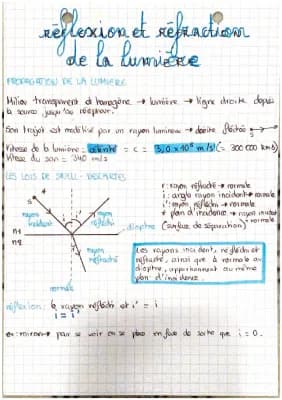 réflexion et réfraction
de la lumière
PROPAGATION DE LA LUMIERE
Milieu transparent et homogène → lumière → ligne droite depuis
la source jusqu'au récepteur.
Son trajet est modélisé par un rayon lumineux → droite fléchée
Vitesse de la lumière : célérité = c = 3,0 x 10⁸ m/s (→ 300 000 km/s)
Vitesse du son = 340 m/s
LES LOIS DE SNELL-DESCARTES
r : rayon réfracté → normale
i : angle rayon incident → normale
i' : rayon réfléchi → normale
≠ plan d'incidence → rayon incident
+ normale
rayon
incident
rayon
réfléchi
dioptre (surface de séparation)
n1
n2
rayon
réfracté
normale
Les rayons incident, réfléchi et
réfracté, ainsi que la normale au
dioptre, appartiennent au même
plan d'incidence.
réflexion : rayon réfléchi et i' = i
i = i'
ex : miroir → pour se voir on se place en face de sorte que i = 0.